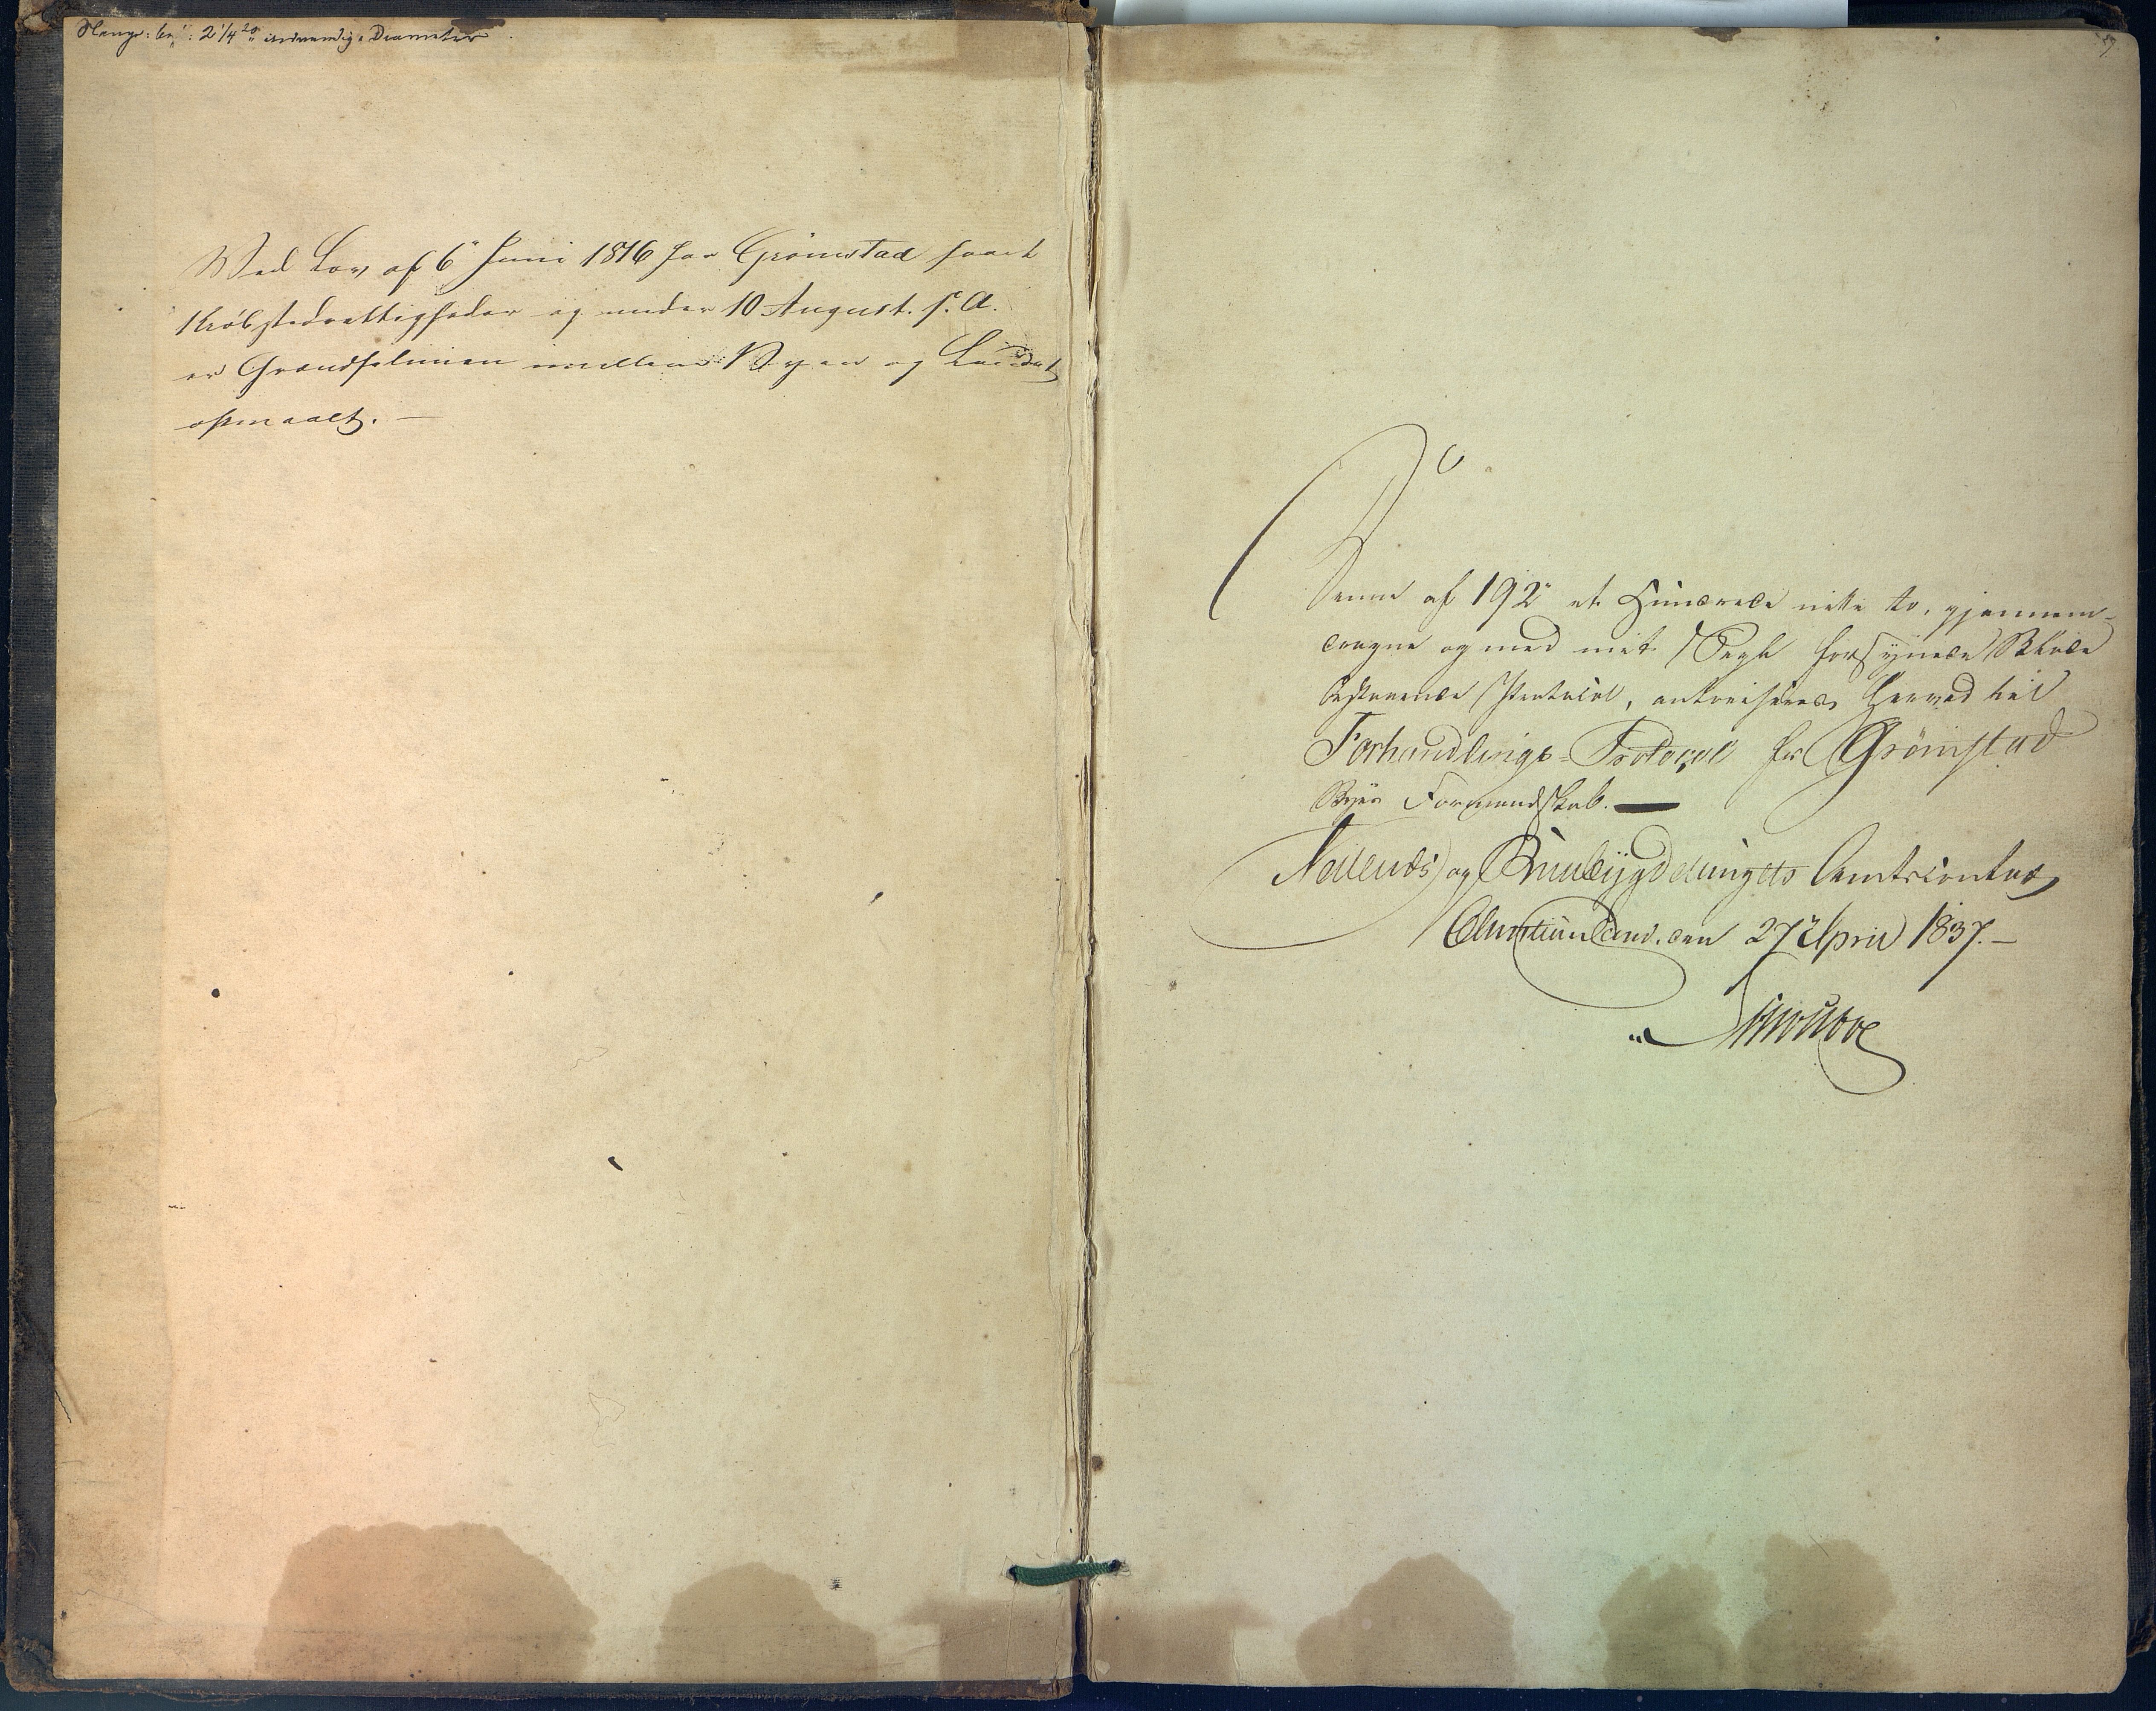 2 1/4 indvendig Diameter
Ved Lov af 6 Juni 1816 har Grimstad faaet
Kiøbstedrettigheder og under 10 August s. A.
er Grændselinien mellem Byen og Landet
opmaalt. —
Denne af 192 et Hundrede nitti to, gjennem-
dragne og med mit Segl forsynede Blade
bestaaende Protocol, authoriseres herved til
Forhandlings-Protocol for Grimstad
Byes Formandskab. —
Nedenæs og Raabygdelaugets Amtscontor,
Christiansand den 27 April 1837. —